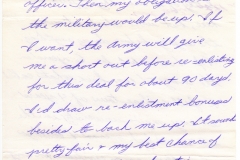 officer. Then my obligation
the military would be up. If
I want, the Army will give
me a short out before re-enlisting
for this deal for about 90 days.
I'd draw re-enlistment bonuses
besides to back me up. It sounds
pretty fair & my best chance of